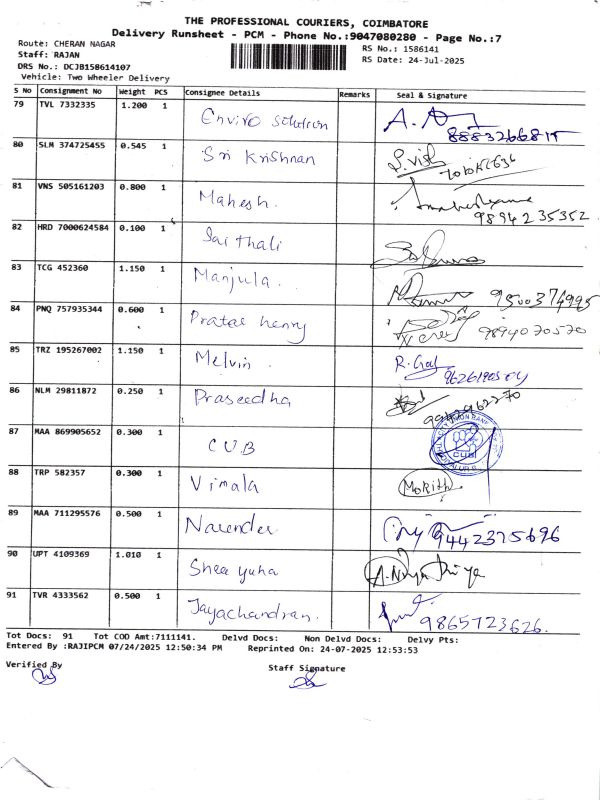 THE PROFESSIONAL COURIERS, COIMBATORE
Delivery Runsheet - PCM - Phone No.:9047080280 - Page No.:7
Route: CHERAN NAGAR
Staff: RAJAN
DRS No.: DCJB158614107
Vehicle: Two Wheeler Delivery
RS No.: 1586141
RS Date: 24-Jul-2025
S No Consignment No Weight PCS Consignee Details Remarks Seal & Signature
79 TVL 7332335 1.200 1 Enviro Solution
80 SLM 374725455 0.545 1 Sri Krishnan
81 VNS 505161203 0.800 1 Mahesh. 9894235352
82 HRD 7000624584 0.100 1 Sai thali
83 TCG 452360 1.150 1 Manjula. 9500374995
84 PNQ 757935344 0.600 1 Pratap henry 9894070570
85 TRZ 195267002 1.150 1 Melvin.
86 NLM 29811872 0.250 1 Praseedha
87 MAA 869905652 0.300 1 CUB CUB
88 TRP 582357 0.300 1 Vimala
89 MAA 711295576 0.500 1 Narender 9442375696
90 UPT 4109369 1.010 1
91 TVR 4333562 0.500 1 Jayachandran. 9865723626.
Tot Docs: 91 Tot COD Amt:7111141. Delvd Docs: Non Delvd Docs: Delvy Pts:
Entered By :RAJIPCM 07/24/2025 12:50:34 PM Reprinted On: 24-07-2025 12:53:53
Verified By Staff Signature